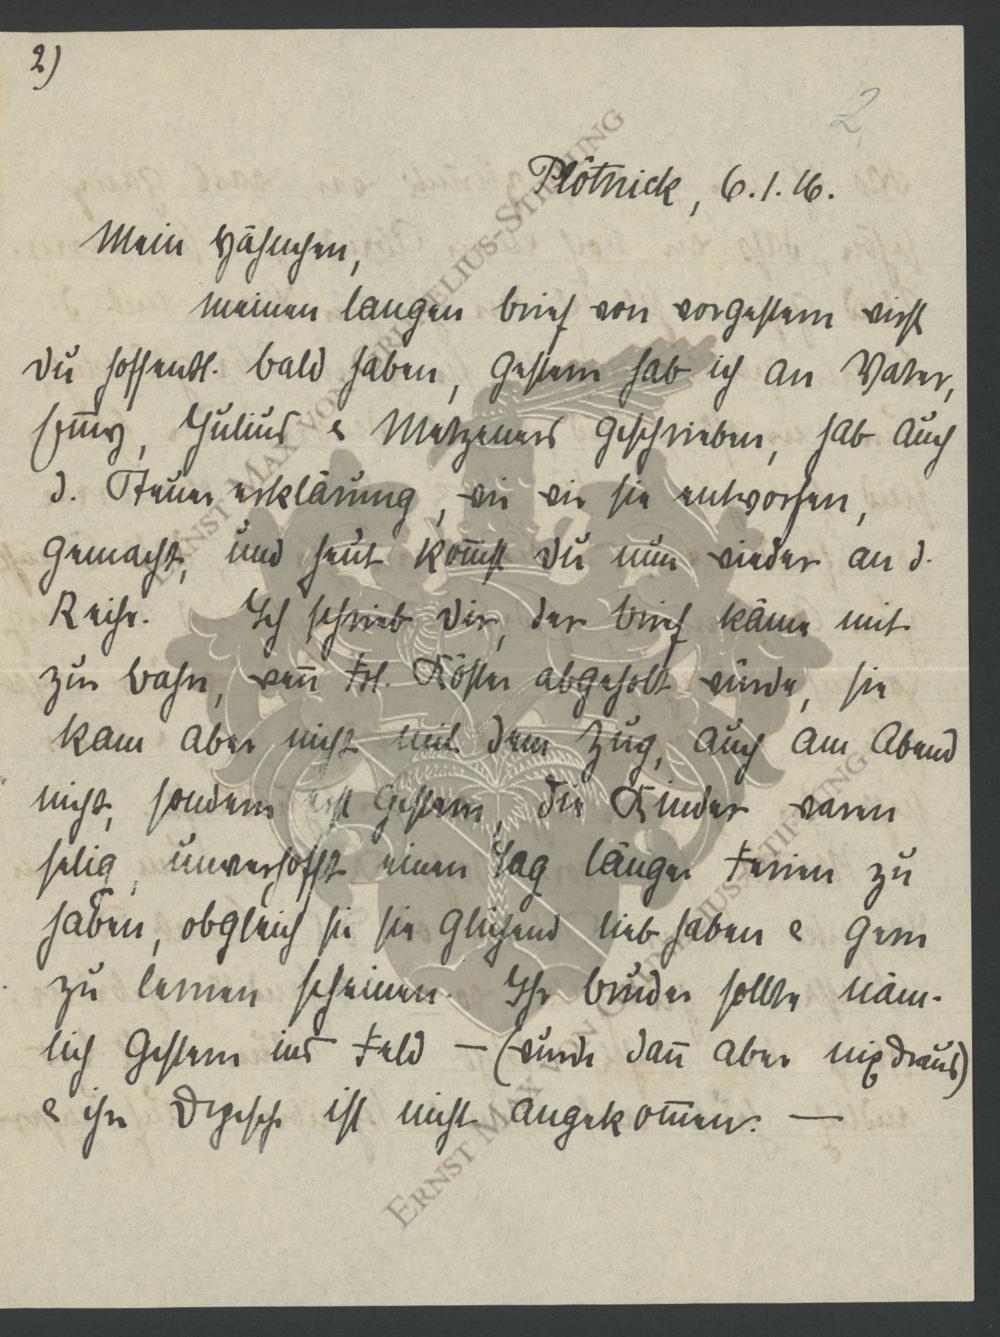 2)
2
Plötnick, 6.1.16.
Mein Hähnchen,
meinen langen brief von vorgestern wirst
du hoffentl. bald haben, gestern hab ich an Vater,
Julius & Metzeners geschrieben, hab auch
d. Steuererklärung, wie wir sie entworfen,
gemacht, und heut kom̅st du nun wieder an d.
Reihe. Ich schrieb dir, der brief käme mit
zur bahn, wen̅ Frl. Köster abgeholt würde, sie
kam aber nicht mit dem Zug, auch am Abend
nicht, sondern erst gestern, die Kinder waren
selig, unverhofft einen Tag länger Ferien zu
haben, obgleich sie sie glühend lieb haben & gern
zu lernen scheinen. Ihr bruder sollte näm-
lich gestern ins Feld — (wurde dan̅ aber nix draus)
& ihre Depesche ist nicht angekom̅en. —
ERNST MAX VON GRUNELIUS-STIFTUNG
ERNST MAX VON GRUNELIUS-STIFTUNG